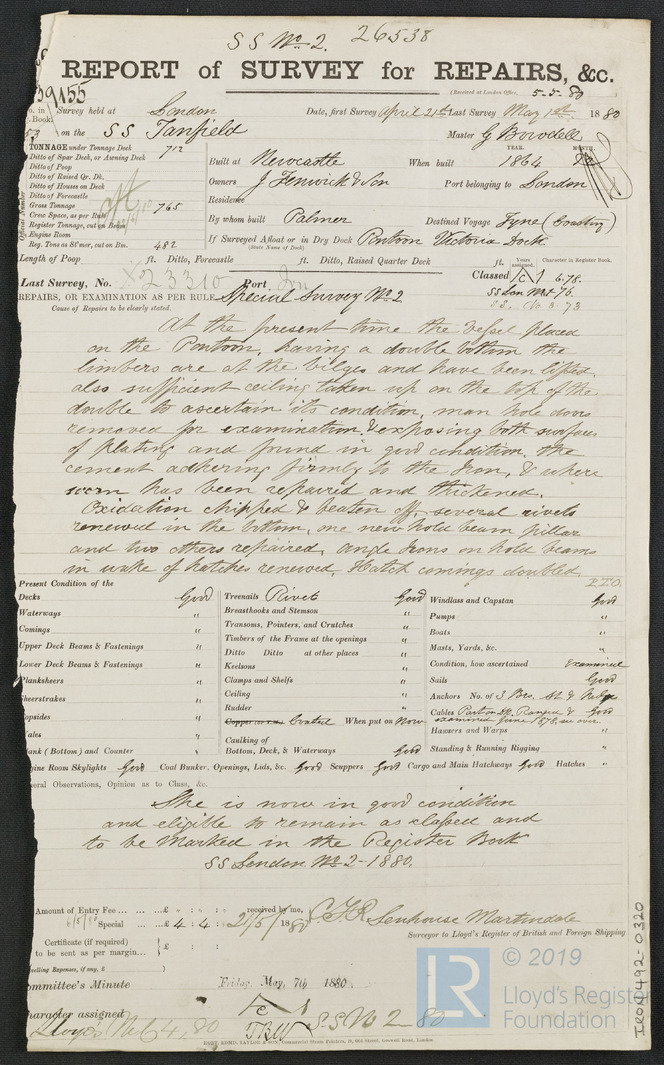 SS No. 2. 26538
39155
REPORT of SURVEY for REPAIRS, &c.
(Received at London Office, 5-5-80
No. in Survey held at London Date, first Survey April 21st Last Survey May 1st 1880
Book.
53 on the SS Tanfield Master G Bowdell
TONNAGE under Tonnage Deck 712
Ditto of Spar Deck, or Awning Deck
Ditto of Poop
Ditto of Raised Qr. Dk.
Ditto of Houses on Deck
Ditto of Forecastle
Gross Tonnage 765
Crew Space, as per Rule
Register Tonnage, cut on Beam
Engine Room
Reg. Tons as St'mer, cut on Bm. 482
Official Number
YEAR. MONTH.
Built at Newcastle When built 1864
Owners J Fenwick & Son Port belonging to London
Residence
By whom built Palmer Destined Voyage Tyne (Coasting)
If Surveyed Afloat or in Dry Dock Pontoon Victoria Dock
(State Name of Dock)
Length of Poop ft. Ditto, Forecastle ft. Ditto, Raised Quarter Deck ft.
Years assigned. Character in Register Book.
Last Survey, No. 23310 Port
Classed 1 6.78.
SS Lon No1-76.
REPAIRS, OR EXAMINATION AS PER RULE, Special Survey No 2
Cause of Repairs to be clearly stated.
At the present time the vessel placed
on the Pontoon, having a double bottom the
limbers are at the bilges and have been lifted,
also sufficient ceiling taken up on the top of the
double to ascertain its condition, man hole doors
removed for examination, & exposing both surfaces
of plating and found in good condition. the
cement adhering firmly to the Iron, & where
worn has been repaired and thickened.
Oxidation chipped & beaten off, several rivets
renewed in the bottom, one new hold beam pillar
and two others repaired, angle Irons on hold beams
in wake of hatches renewed, Hatch comings doubled,
P.T.O.
Present Condition of the
Decks Good
Waterways "
Comings "
Upper Deck Beams & Fastenings "
Lower Deck Beams & Fastenings "
Planksheers "
Sheerstrakes "
Topsides "
Wales "
Plank (Bottom) and Counter "
Treenails Rivets Good
Breasthooks and Stemson "
Transoms, Pointers, and Crutches "
Timbers of the Frame at the openings "
Ditto Ditto at other places "
Keelsons "
Clamps and Shelfs "
Ceiling "
Rudder "
Copper Coated When put on Now
Caulking of
Bottom, Deck, & Waterways Good
Windlass and Capstan Good
Pumps "
Boats "
Masts, Yards, &c. "
Condition, how ascertained Examined
Sails Good
Anchors No. of 3 Brs. St & Kedge
Cables Part on Dk. Ranged & Good
examined June 1878. see over
Hawsers and Warps "
Standing & Running Rigging "
Engine Room Skylights Good Coal Bunker, Openings, Lids, &c. Good Scuppers Good Cargo and Main Hatchways Good Hatches "
General Observations, Opinion as to Class, &c.
She is now in good condition
and eligible to remain as classed and
to be Marked in the Register Book
SS London No 2-1880.
Amount of Entry Fee ... ... ... £ : :
Special ... £ 4 : 4 : received by me,
6/5/80 21/5/1880
Certificate (if required)
to be sent as per margin... } £ : :
Travelling Expenses, if any, £
Senhouse Martindale
Surveyor to Lloyd's Register of British and Foreign Shipping
Committee's Minute Friday, May, 7th 1880
Character assigned 1
SS No 2 80
Lloyd's
© 2019
LR
Lloyd's Register
Foundation
IRON492-0320